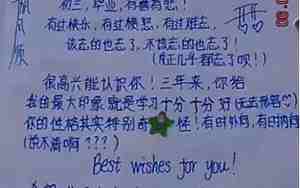 初三，毕业，有喜有悲！
有过快乐，有过愤怒，有过难忘，
该忘的也忘了，不该忘的也忘了！
(反正几乎都忘了呗！)
很高兴能认识你！三年来，你给
我的最大印象就是学习十分十分好(无法形容)
你的性格其实特别奇怪！有时外向，有时内向
(说不清啊???)
Best wishes for you!
帆风顺